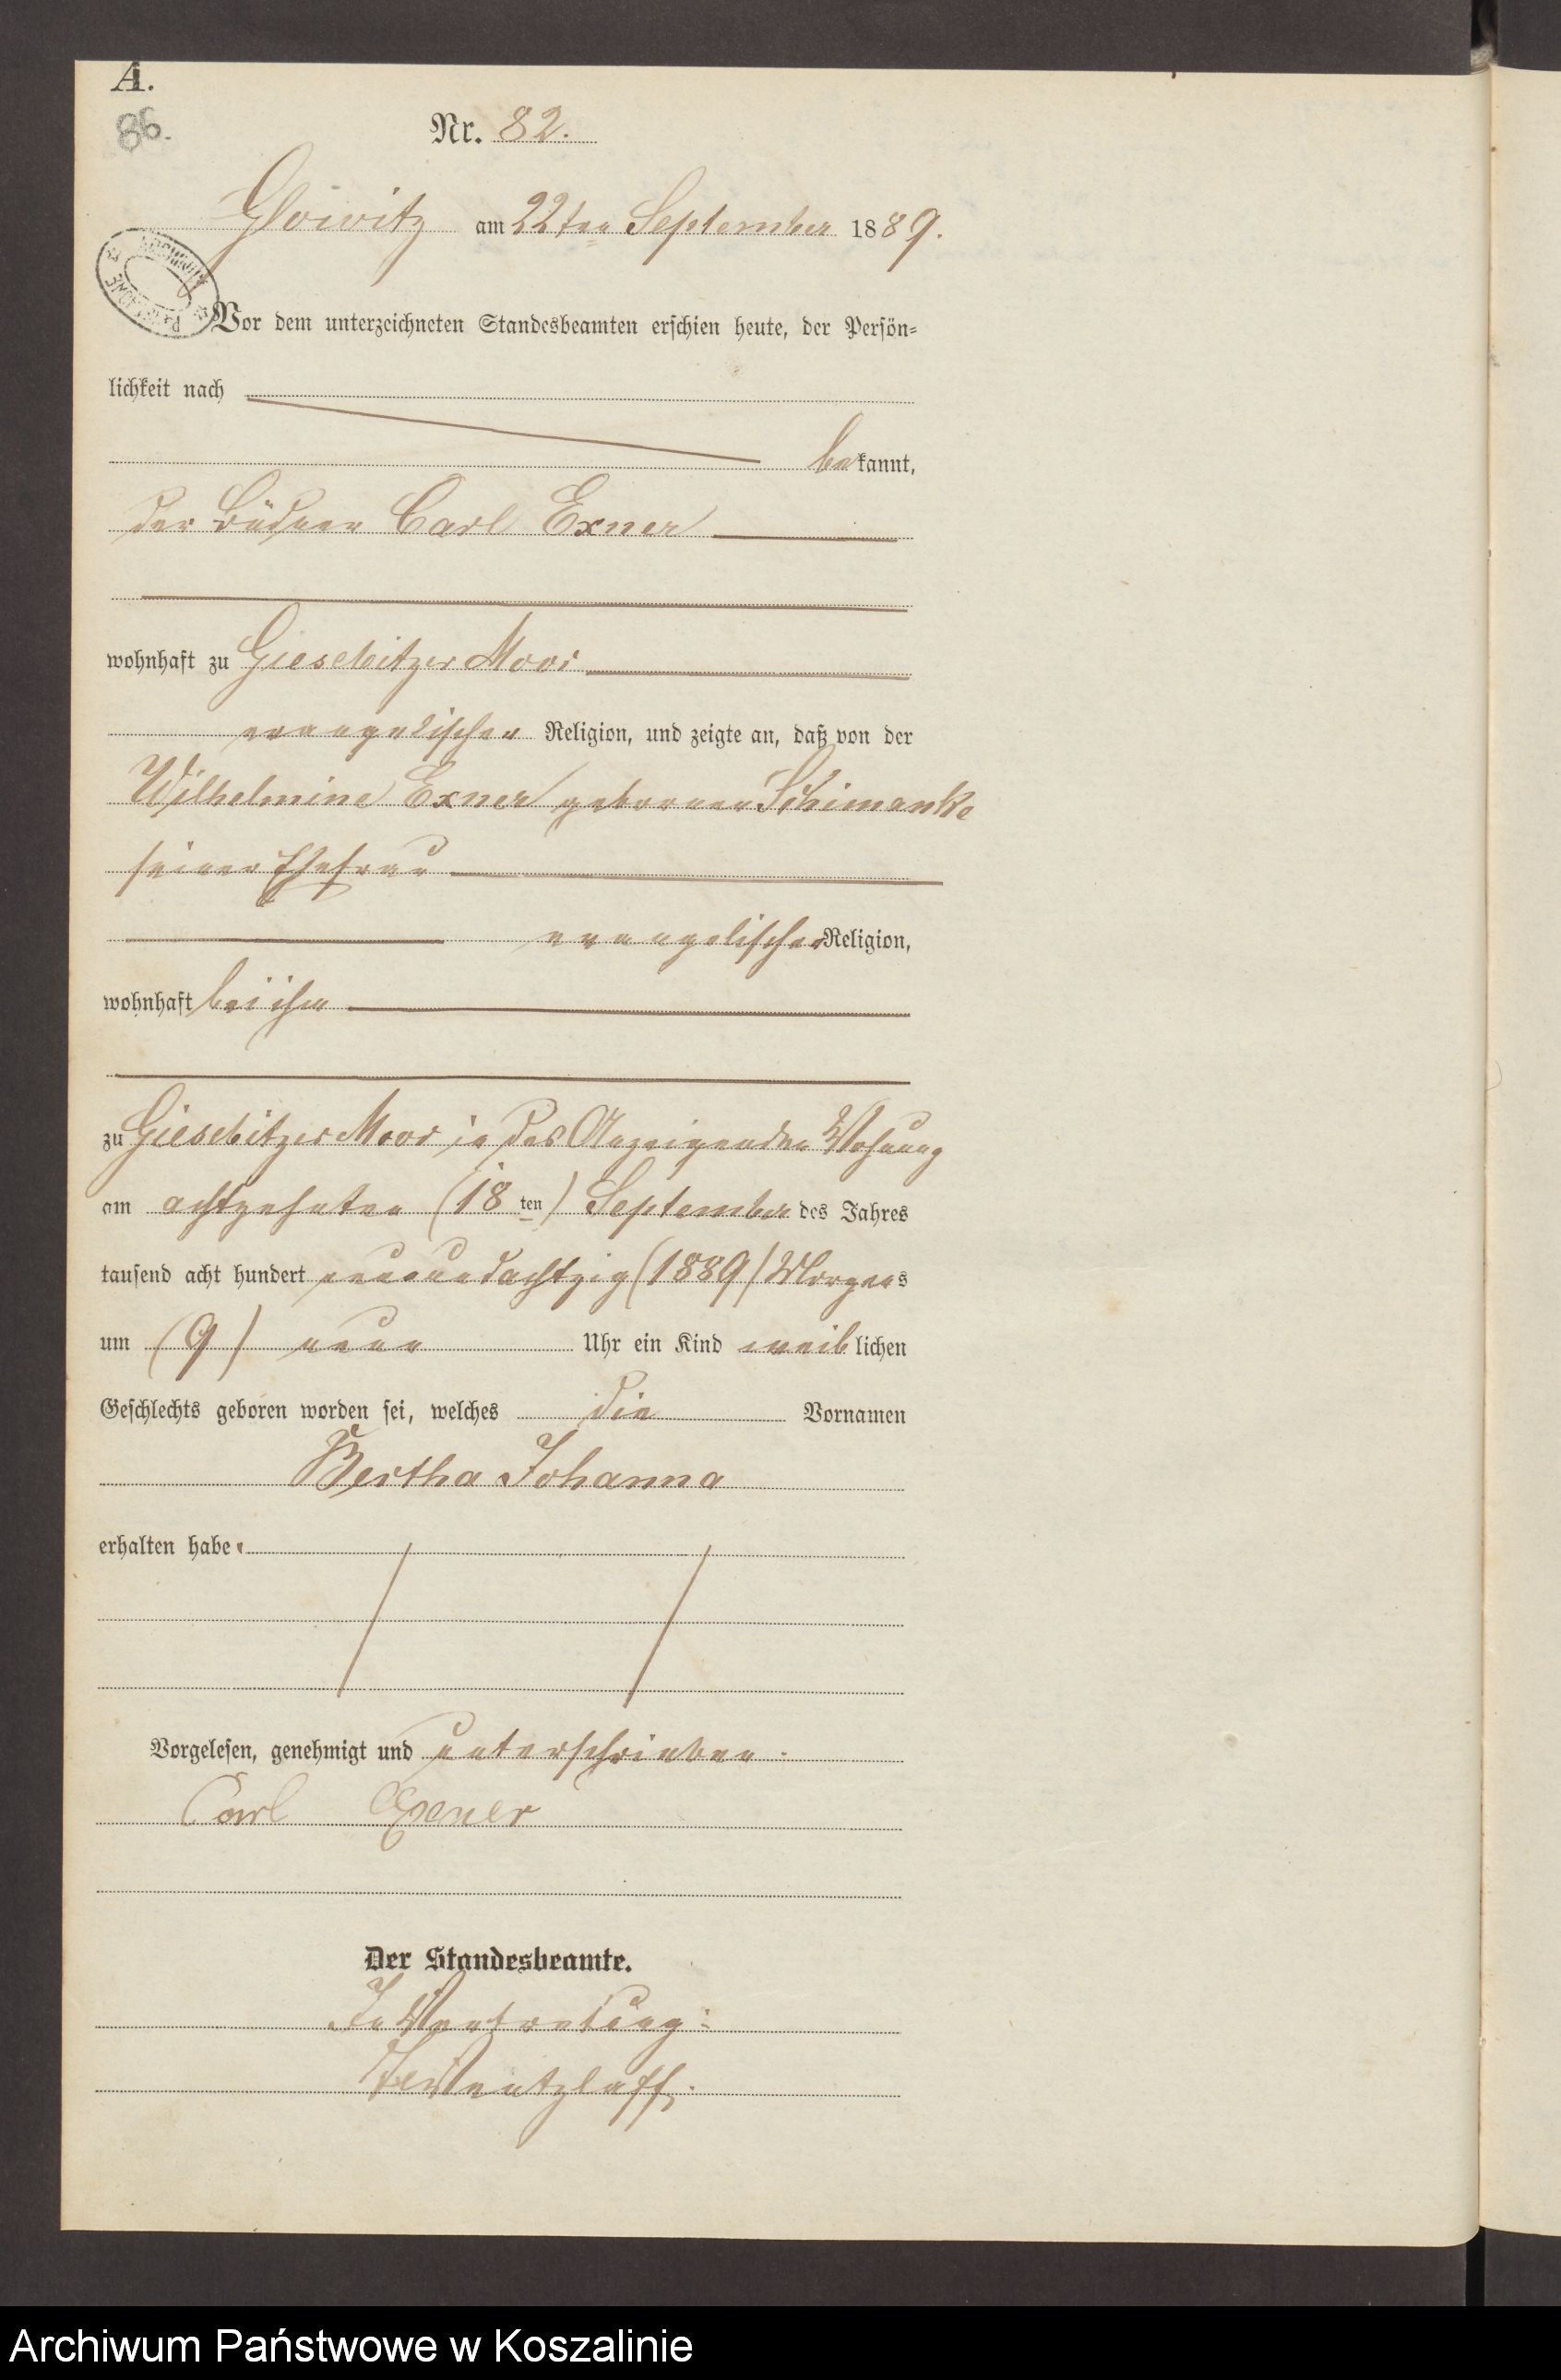 A.
86.
Nr. 82.
Glowitz am 22ten September 1889.
Vor dem unterzeichneten Standesbeamten erschien heute, der Persön-
lichkeit nach
bekannt,
der Büdner Carl Exner
wohnhaft zu Giesebitzer Moor
evangelischer Religion, und zeigte an, daß von der
Wilhelmine Exner geborenen Schimanke
seiner Ehefrau
evangelischer Religion,
wohnhaft bei ihm
zu Giesebitzer Moor in des Anzeigenden Wohnung
am achtzehnten (18ten) September des Jahres
tausend acht hundert neunundachtzig (1889) Morgens
um (9) neun Uhr ein Kind weiblichen
Geschlechts geboren worden sei, welches die Vornamen
Bertha Johanna
erhalten habe.
Vorgelesen, genehmigt und unterschrieben.
Carl Exner
Der Standesbeamte.
In Vertretung:
Wentzlaff.
Archiwum Państwowe w Koszalinie